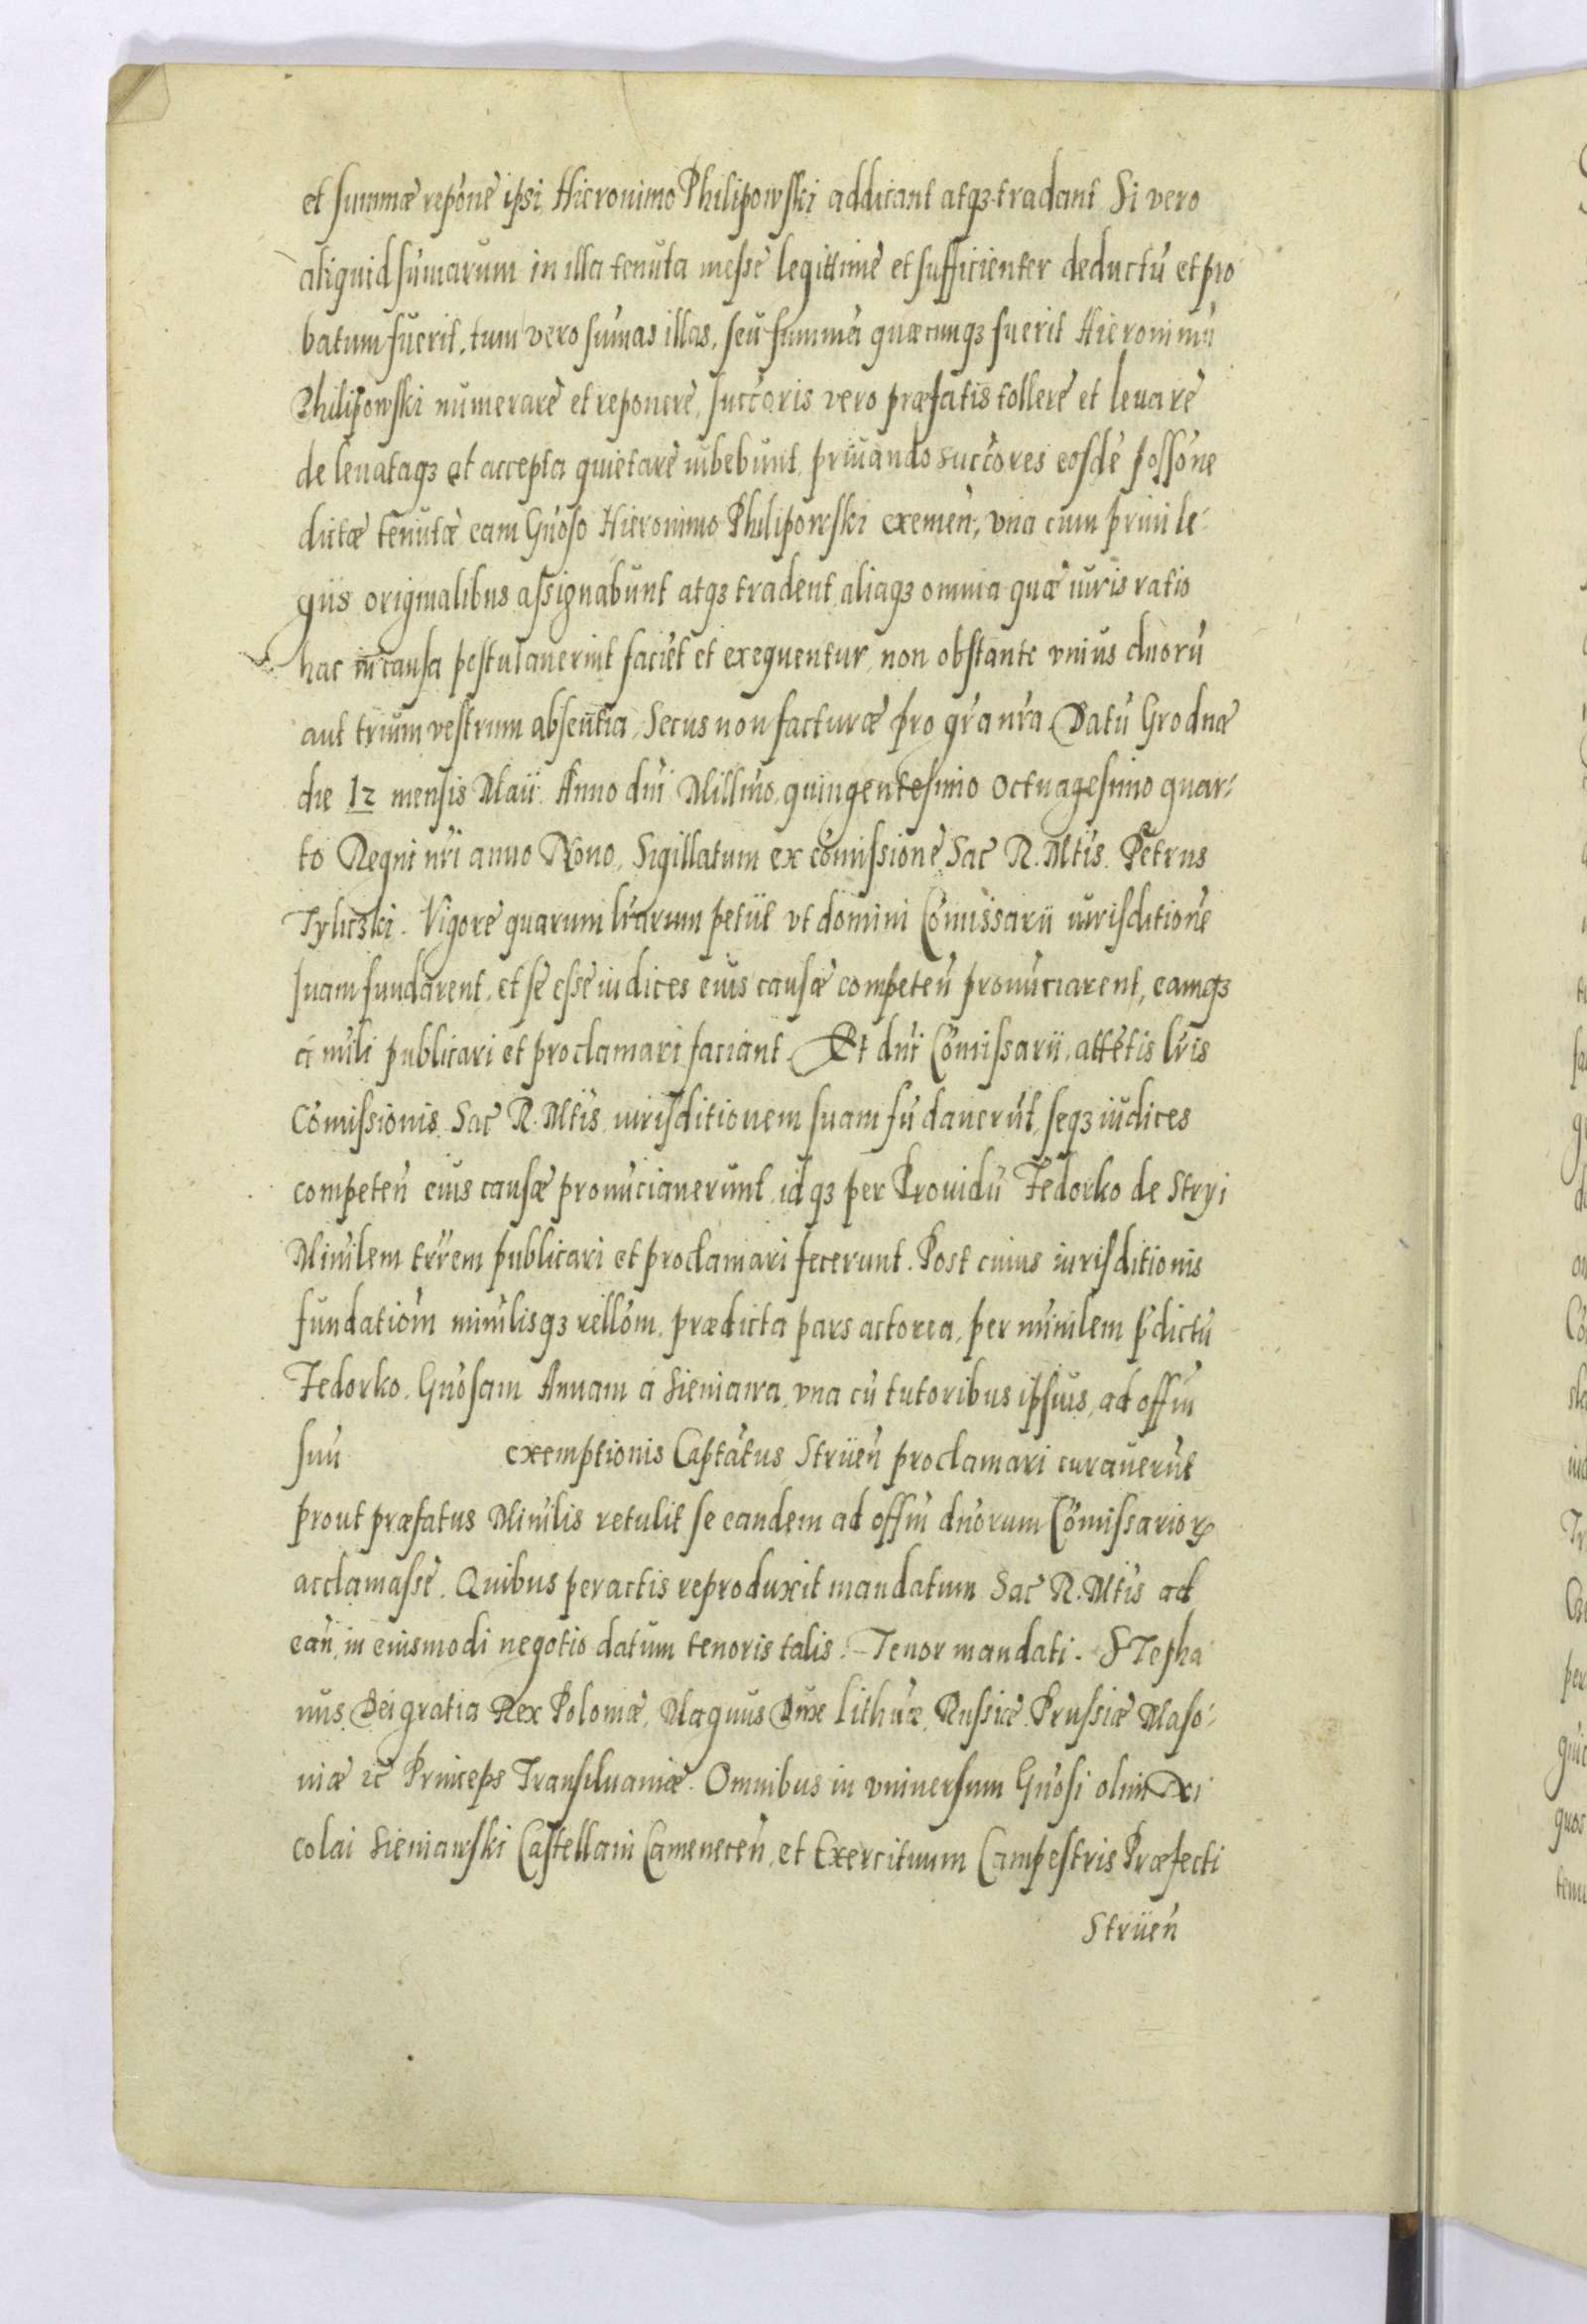 et summæ repone ipsi Hieronimo Philipowski addicant atqꝫ tradant Si vero
aliquid sumarum in illa tenuta inesse legittime et sufficienter deductu et pro
batum fuerit, tum vero sumas illas, seu summa quæcunqꝫ fuerit Hieronimu
Philipowski numerare et reponere, succoris vero præfatis tollere et leuare
de leuataqꝫ et accepta quietare iubebunt, priuando succores eosde possone
dictæ tenutæ eam Gnoso Hieronimo Philipowski exemen, vna cum priuile-
giis originalibus assignabunt atqꝫ tradent aliaqꝫ omnia quæ iuris ratio
hac in causa postulauerint faciet et exequentur, non obstante vnius duoru
aut trium vestrum absentia, Secus non facturæ pro gra nra Datu Grodnæ
die 12 mensis Maii Anno dni Millmo quingentesimo octuagesimo quar-
to Regni nri anno Nono, Sigillatum ex comissione Sac R. Mtis. Petrus
Tyliczki. Vigore quarum lrarum petiit vt domini Comissarii iurisditione
suam fundarent, et se esse iudices eius causæ competen pronuciarent, eamqꝫ
a mili publicari et proclamari faciant. Et dni Comissarii, attetis lris
Comissionis Sac R. Mtis iurisditionem suam fudauerut, seqꝫ iudices
competen eius causæ pronucianerunt, idqꝫ per Prouidu Fedorko de Stryi
Minilem trrem publicari et proclamari fecerunt. Post cuius iurisditionis
fundatiom minilisqꝫ rellom, prædicta pars actorea, per minilem pdictu
Fedorko, Gnosam Annam a Sieniawa, vna cu tutoribus ipsius, ad offm
suu exemptionis Captatus Striien proclamari curauerut
prout præfatus Minilis retulit se eandem ad offm dnorum Comissarioꝝ
acclamasse. Quibus peractis reproduxit mandatum Sac R. Mtis ad
ean, in eiusmodi negotio datum tenoris talis. - Tenor mandati. STepha
nus Dei gratia Rex Poloniæ, Magnus Dux Lithuæ, Russiæ, Prussiæ Maso-
uiæ ꝛc Princeps Transiluaniæ. Omnibus in vniuersum Gnosi olim Ni
colai Sieniawski Castellani Camenecen, et Exercituum Campestris Præfecti
Striien